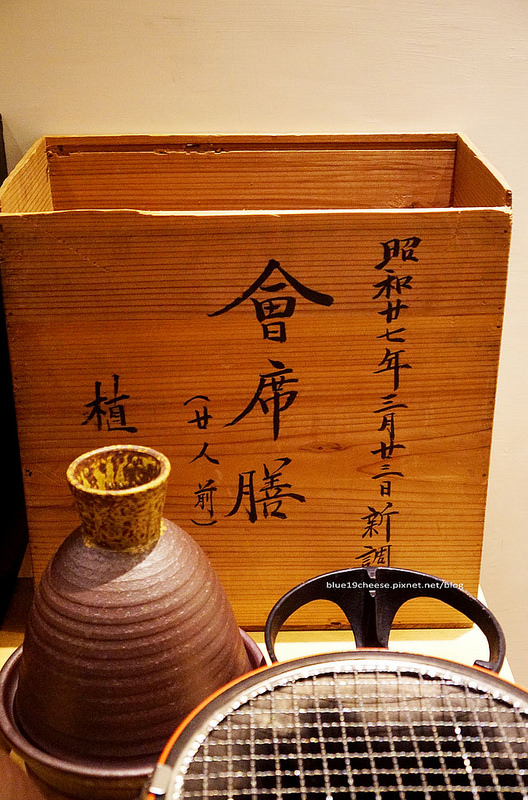 昭和廿七年三月廿三日新調
會席膳
（廿人前）
植
blue19cheese.pixnet.net/blog